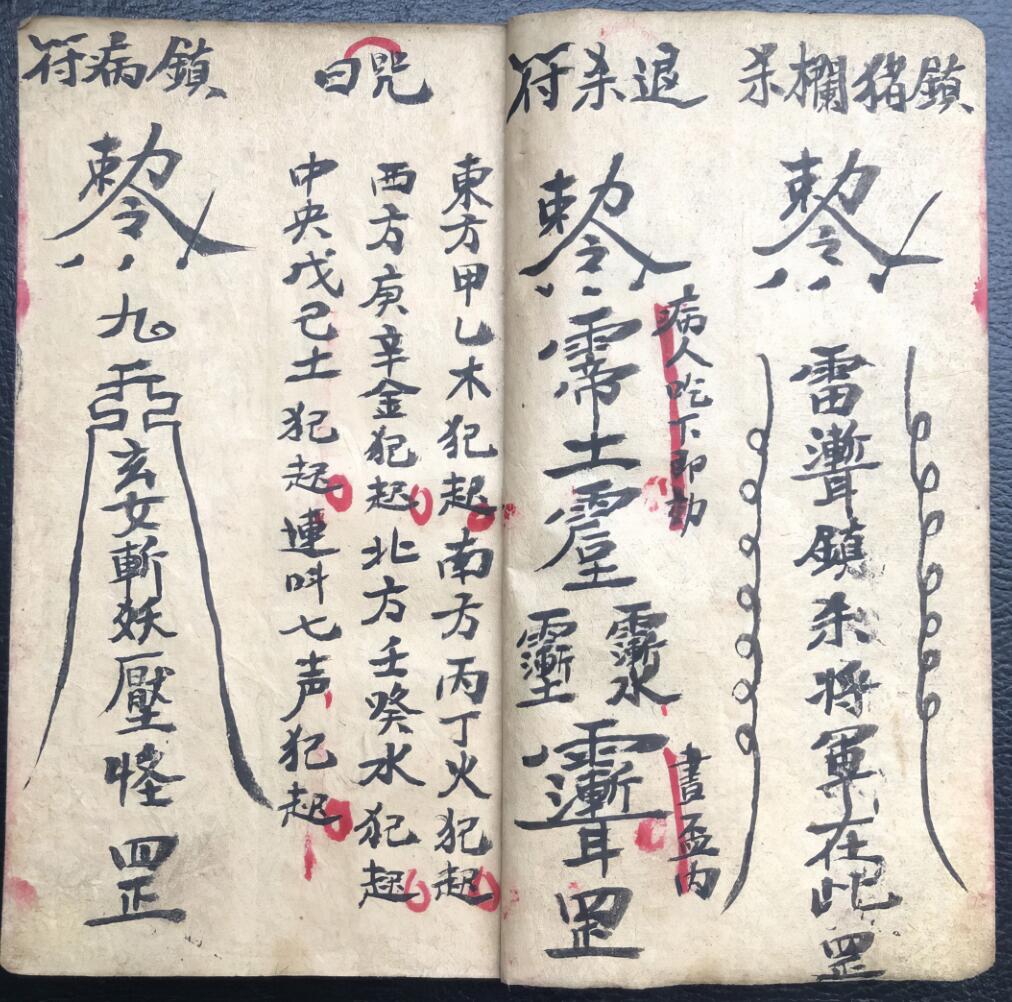 鎮猪欄杀
勅令
雷
鎮杀将軍在此罡
退杀符
勅令
土
罡
病人吃下即効
書盃内
咒曰
東方甲乙木犯起南方丙丁火犯起
西方庚辛金犯起北方壬癸水犯起
中央戊己土犯起連叫七声犯起
鎮病符
勅令
九
玄女斬妖壓怪
罡